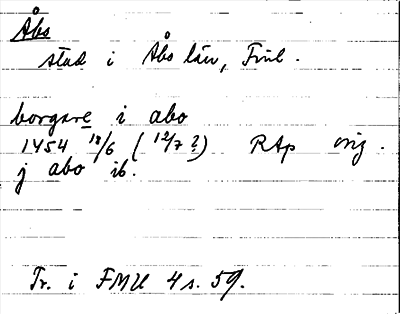 Åbo
stad i Åbo län, Finl.
borgare i abo
1454 18/6 (12/7?) RAp orig.
j abo ib.
Tr. i FMU 4 s. 59.